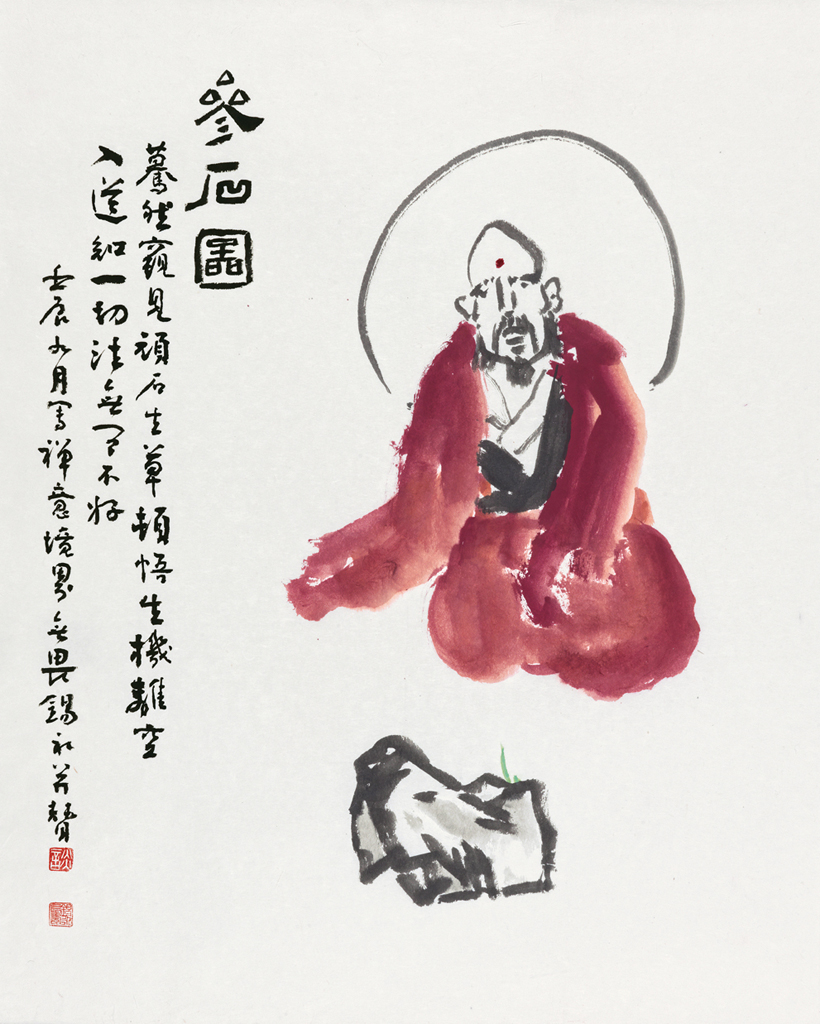 參石圖
驀然窺見頑石生草頓悟生機離空
入道知一切法無不好
壬辰九月寫禪意境界無畏錫永并贊